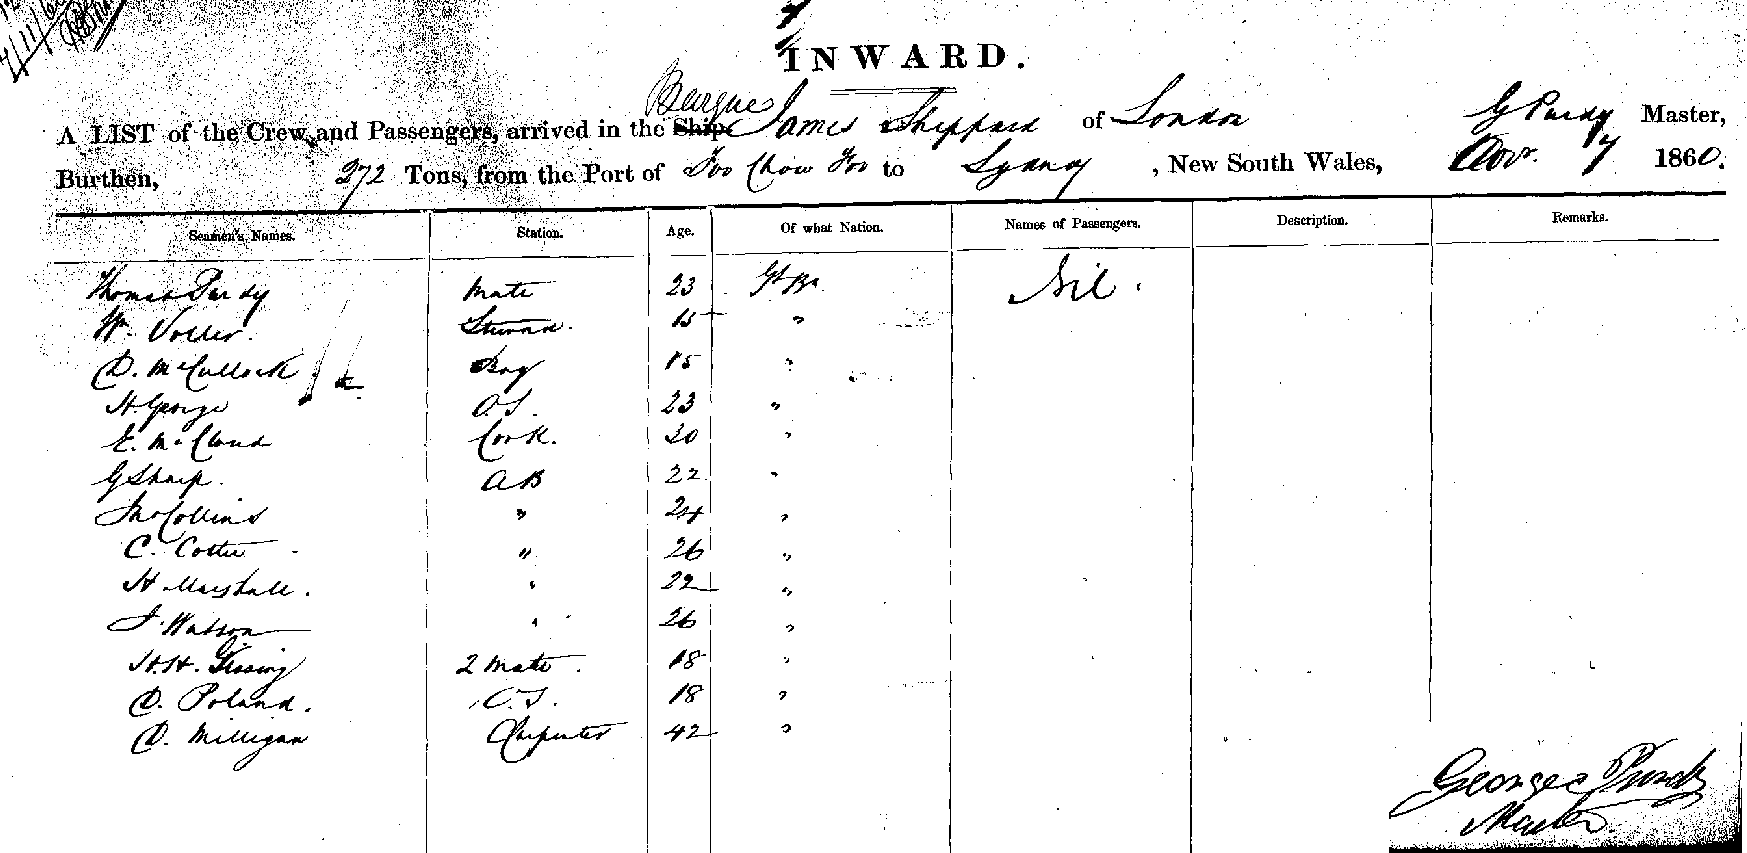 7/11/60
INWARD.
Barque
A LIST of the Crew and Passengers, arrived in the Ship James Sheppard of London G Purdy Master,
Burthen, 272 Tons, from the Port of Foo Chow Foo to Sydney, New South Wales, Novr. 7 1860.
Seamen's Names. Station. Age. Of what Nation. Names of Passengers. Description. Remarks.
Thomas Purdy Mate 23 Gt Bn Nil.
Wm. Voller. Steward. 15 "
D. McCullock Boy 15 "
H. George O.S. 23 "
E. McCloud Cook. 20 "
G Sharp. AB 22 "
Jno Collins " 24 "
C. Cotter " 26 "
H Marshall. " 22 "
J. Watson " 26 "
H.H. 2 Mate. 18 "
D. Poland. O.S. 18 "
D. Milligan Carpenter 42 "
George Purdy
Master.